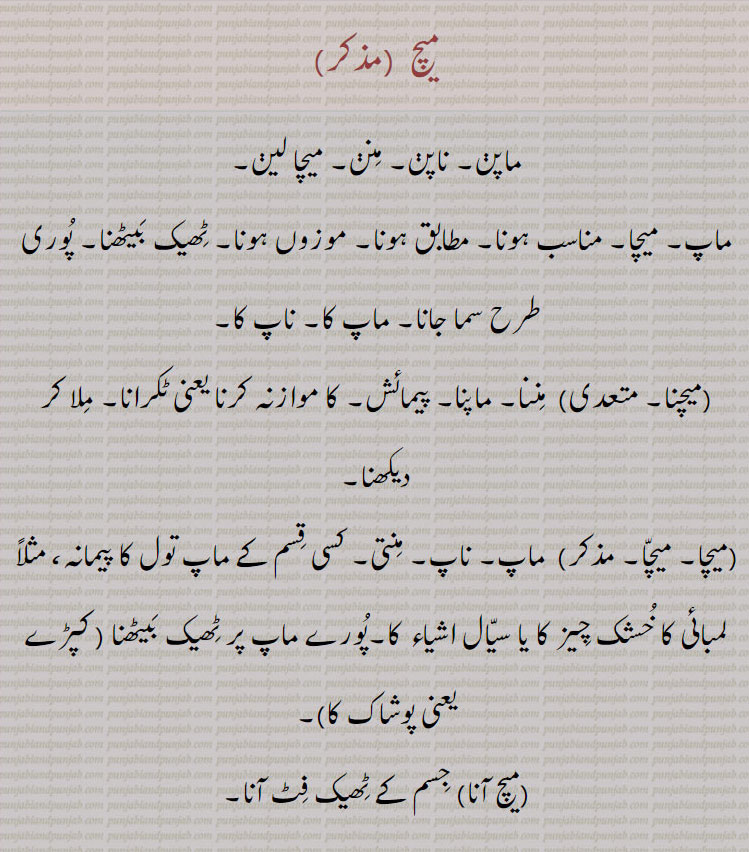 میچ (مذکر)
ماپن۔ ناپن۔ مِنن۔ میچا لین۔
ماپ۔ میچا۔ مناسب ہونا۔ مطابق ہونا۔ موزوں ہونا۔ ٹِھیک بَیٹھنا۔ پُوری
طرح سما جانا۔ ماپ کا۔ ناپ کا۔
(میچنا۔ متعدی) مِننا۔ ماپنا۔ پیمائش۔ کا موازنہ کرنا یعنی ٹکرانا۔ مِلا کر
دیکھنا۔
(میچا۔ میچّا۔ مذکر) ماپ۔ ناپ۔ مِنتی۔ کسی قِسم کے ماپ تول کا پیمانہ، مثلاً
لمبائی کا خُشک چِیز کا یا سیّال اشیاء کا۔ پُورے ماپ پر ٹِھیک بَیٹھنا (کپڑے
یعنی پوشاک کا)۔
(میچ آنا) جِسم کے ٹِھیک فِٹ آنا۔